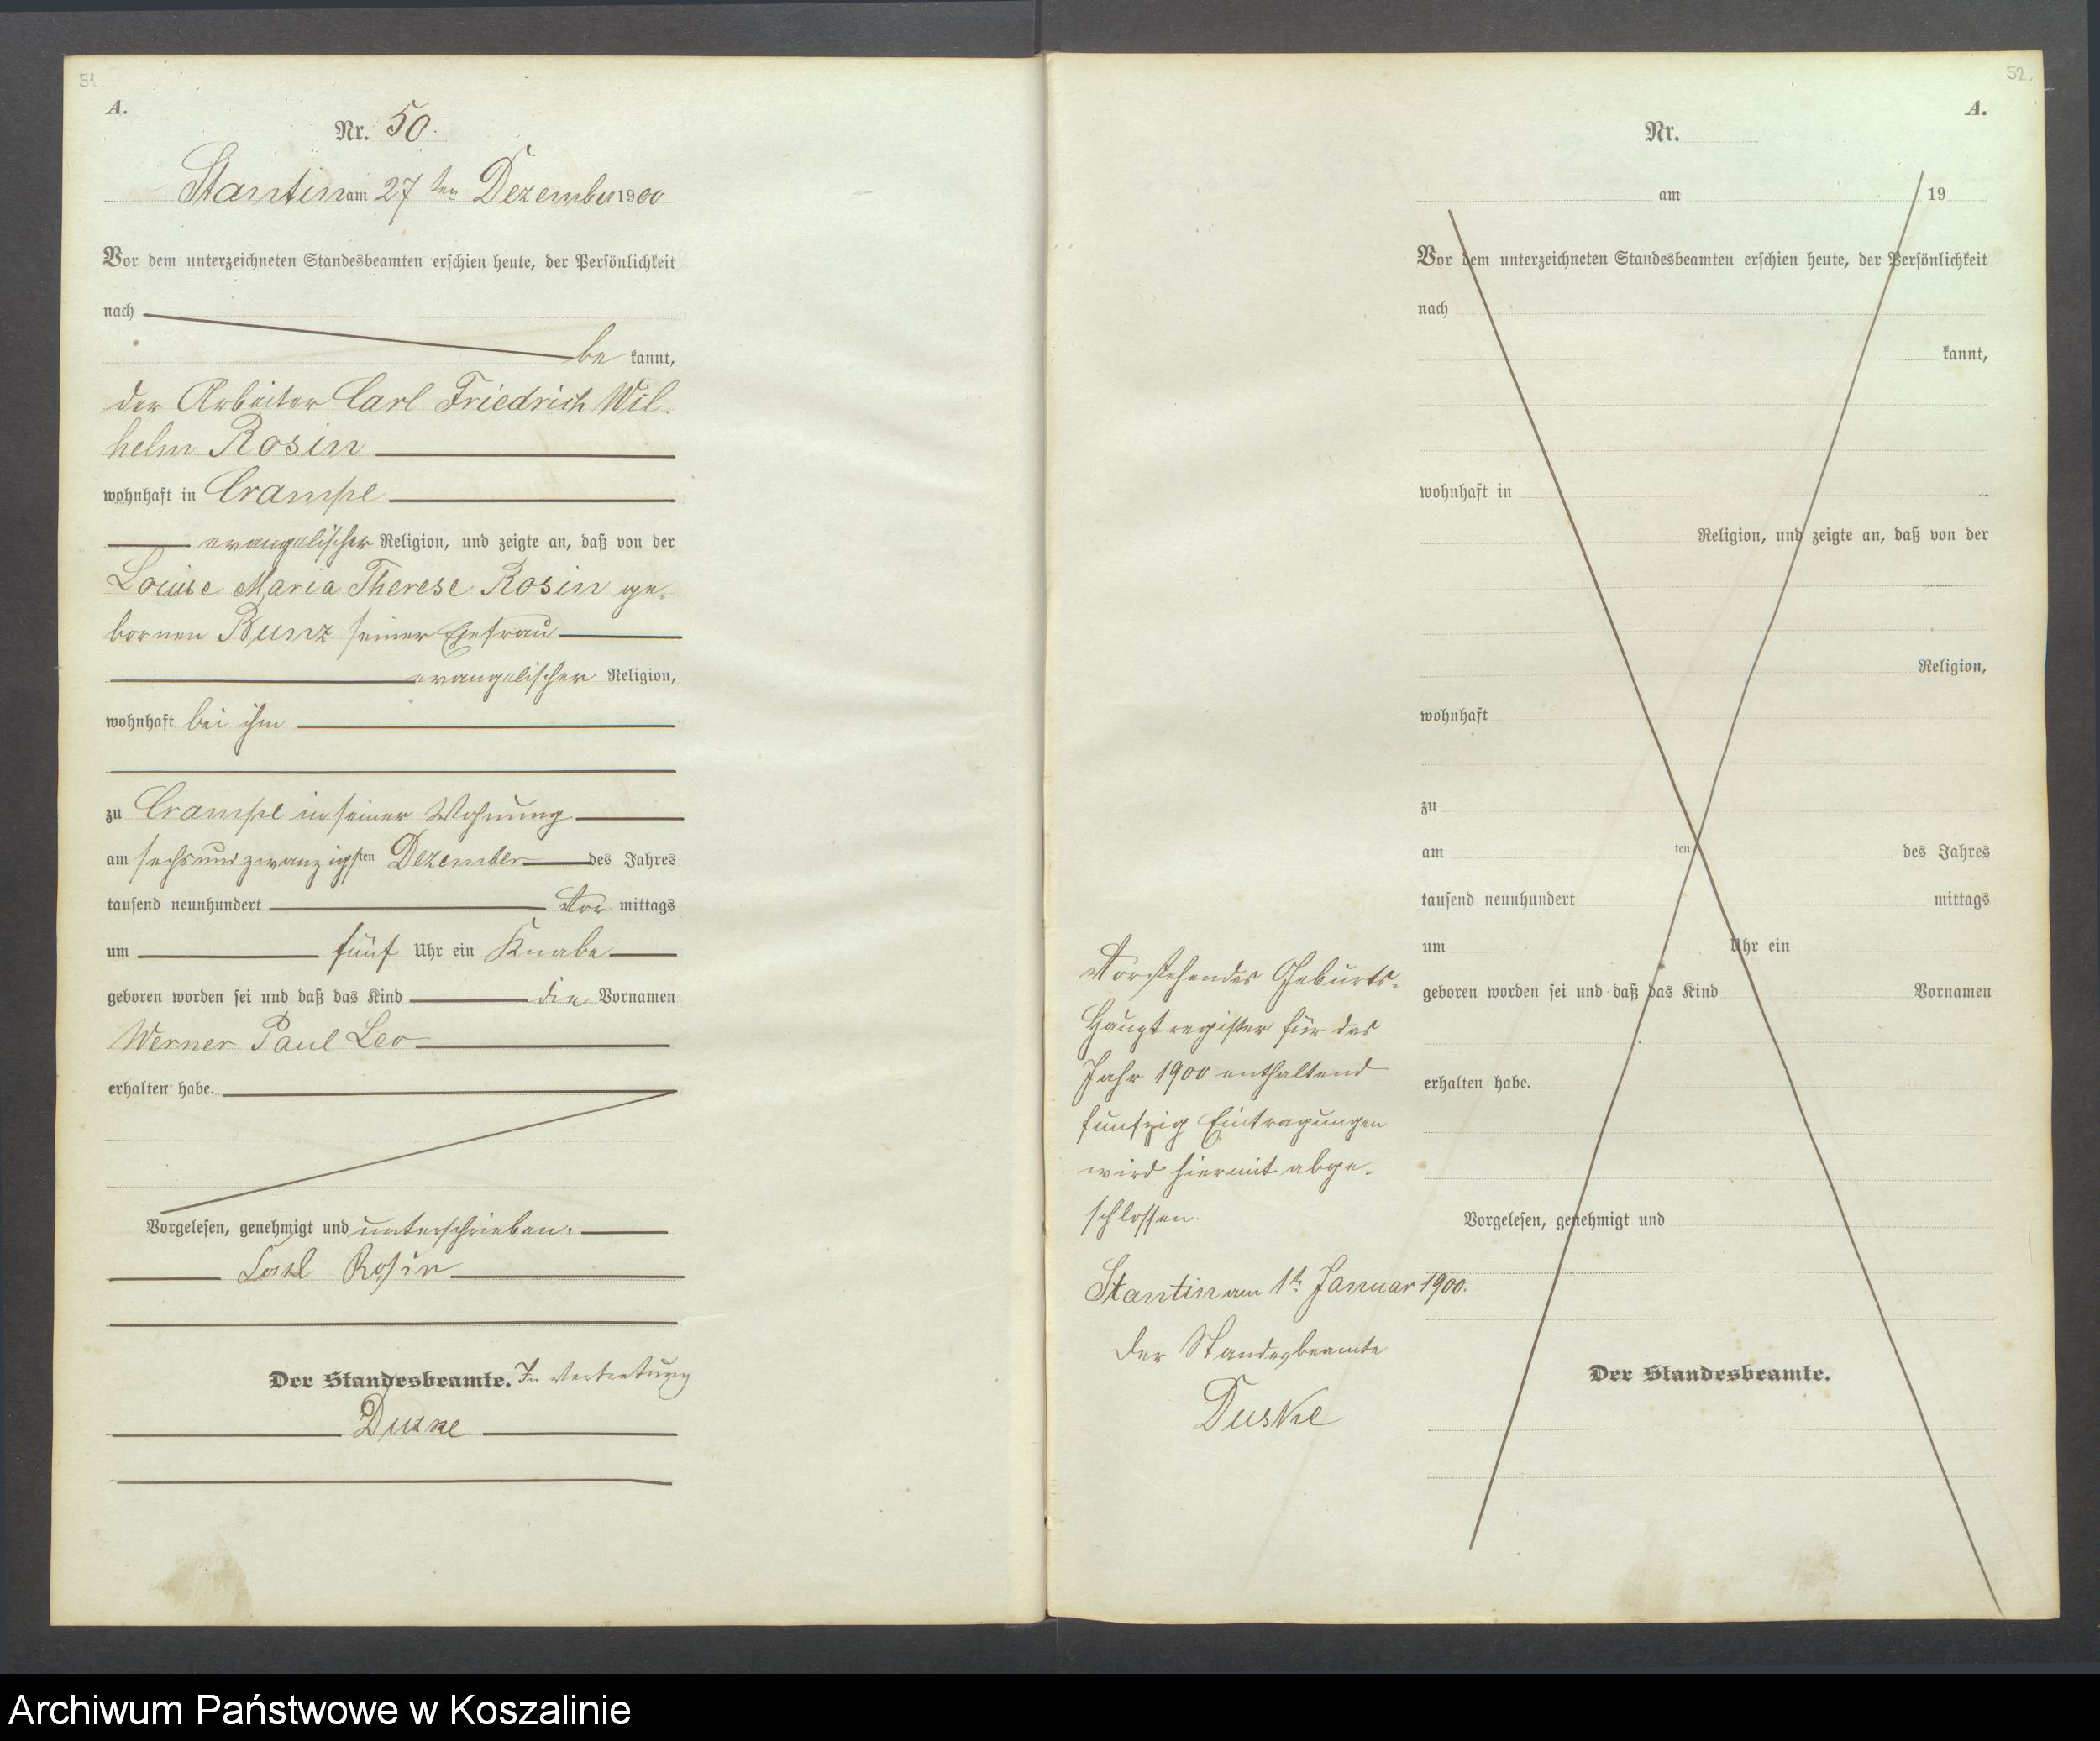 51.
A.
Nr. 50.
Stantin am 27ten Dezember 1900
Vor dem unterzeichneten Standesbeamten erschien heute, der Persönlichkeit
nach
be kannt,
der Arbeiter Carl Friedrich Wil-
helm Rosin
wohnhaft in Crampe
evangelischer Religion, und zeigte an, daß von der
Louise Maria Therese Rosin ge-
bornen Bunz seiner Ehefrau
evangelischer Religion,
wohnhaft bei ihm
zu Crampe in seiner Wohnung
am sechsundzwanzigsten Dezember des Jahres
tausend neunhundert Vor mittags
um fünf Uhr ein Knabe
geboren worden sei und daß das Kind die Vornamen
Werner Paul Leo
erhalten habe.
Vorgelesen, genehmigt und unterschrieben.
Carl Rosin
Der Standesbeamte. In Vertretung
Duske
52.
A.
Nr.
am 19
Vor dem unterzeichneten Standesbeamten erschien heute, der Persönlichkeit
nach
kannt,
wohnhaft in
Religion, und zeigte an, daß von der
Religion,
wohnhaft
zu
am ten des Jahres
tausend neunhundert mittags
um Uhr ein
geboren worden sei und daß das Kind Vornamen
erhalten habe.
Vorgelesen, genehmigt und
Der Standesbeamte.
Vorstehendes Geburts-
Hauptregister für das
Jahr 1900 enthaltend
funfzig Eintragungen
wird hiermit abge-
schlossen.
Stantin am 1t. Januar 1900.
Der Standesbeamte
Duske
Archiwum Państwowe w Koszalinie